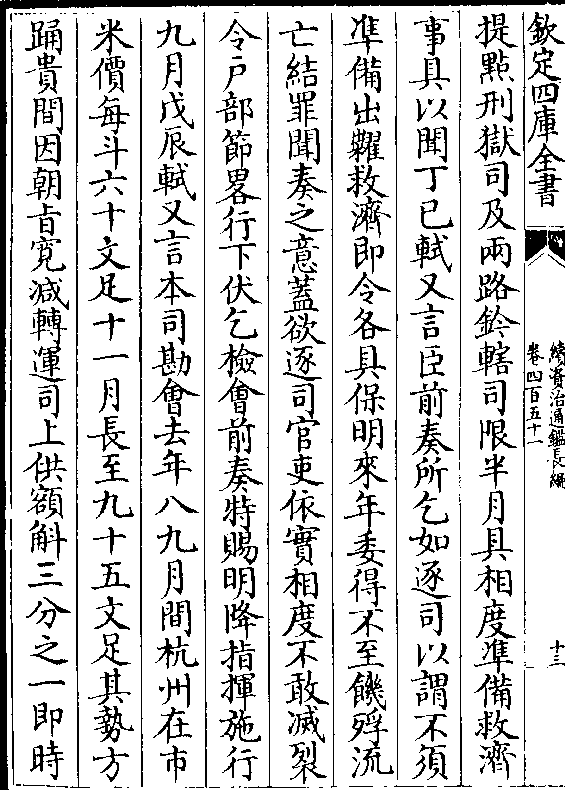 欽定四庫全書
續資治通鑑長編
卷四百五十一
十三
提點刑獄司及兩路鈐轄司限半月具相度準備救濟
事具以聞丁巳軾又言臣前奏所乞如逐司以謂不須
準備出糶救濟即令各具保明來年委得不至饑殍流
亡結罪聞奏之意蓋欲逐司官吏依實相度不敢滅裂
令戸部節畧行下伏乞檢會前奏特賜明降指揮施行
九月戊辰軾又言本司勘會去年八九月間杭州在市
米價每斗六十文足十一月長至九十五文足其勢方
踊貴間因朝㫖寛減轉運司上供額斛三分之一即時